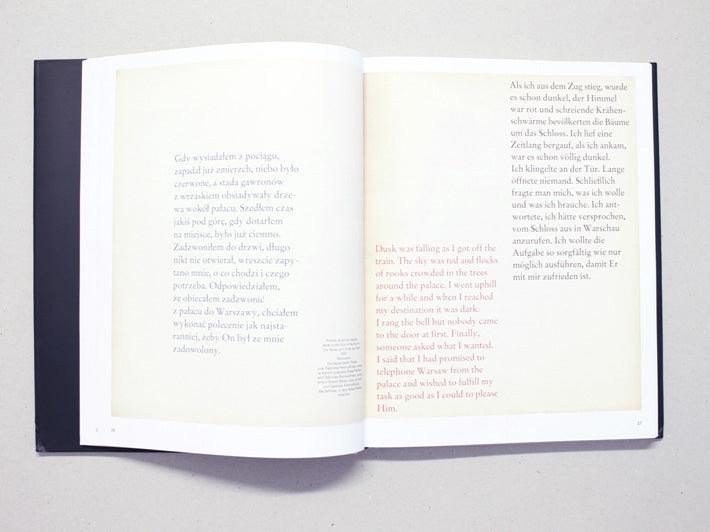 Gdy wysiadałem z pociągu,
zapadał już zmierzch, niebo było
czerwone, a stada gawronów
z wrzaskiem obsiadywały drze-
wa wokół pałacu. Szedłem czas
jakiś pod górę, gdy dotarłem
na miejsce, było już ciemno.
Zadzwoniłem do drzwi, długo
nikt nie otwierał, wreszcie zapy-
tano mnie, o co chodzi i czego
potrzeba. Odpowiedziałem,
że obiecałem zadzwonić
z pałacu do Warszawy, chciałem
wykonać polecenie jak najsta-
ranniej, żeby On był ze mnie
zadowolony.
36
Dusk was falling as I got off the
train. The sky was red and flocks
of rooks crowded in the trees
around the palace. I went uphill
for a while and when I reached
my destination it was dark.
I rang the bell but nobody came
to the door at first. Finally,
someone asked what I wanted.
I said that I had promised to
telephone Warsaw from the
palace and wished to fulfill my
task as good as I could to please
Him.
Als ich aus dem Zug stieg, wurde
es schon dunkel, der Himmel
war rot und schreiende Krähen-
schwärme bevölkerten die Bäume
um das Schloss. Ich lief eine
Zeitlang bergauf, als ich ankam,
war es schon völlig dunkel.
Ich klingelte an der Tür. Lange
öffnete niemand. Schließlich
fragte man mich, was ich wolle
und was ich brauche. Ich ant-
wortete, ich hätte versprochen,
vom Schloss aus in Warschau
anzurufen. Ich wollte die
Aufgabe so sorgfältig wie nur
möglich ausführen, damit Er
mit mir zufrieden ist.
37